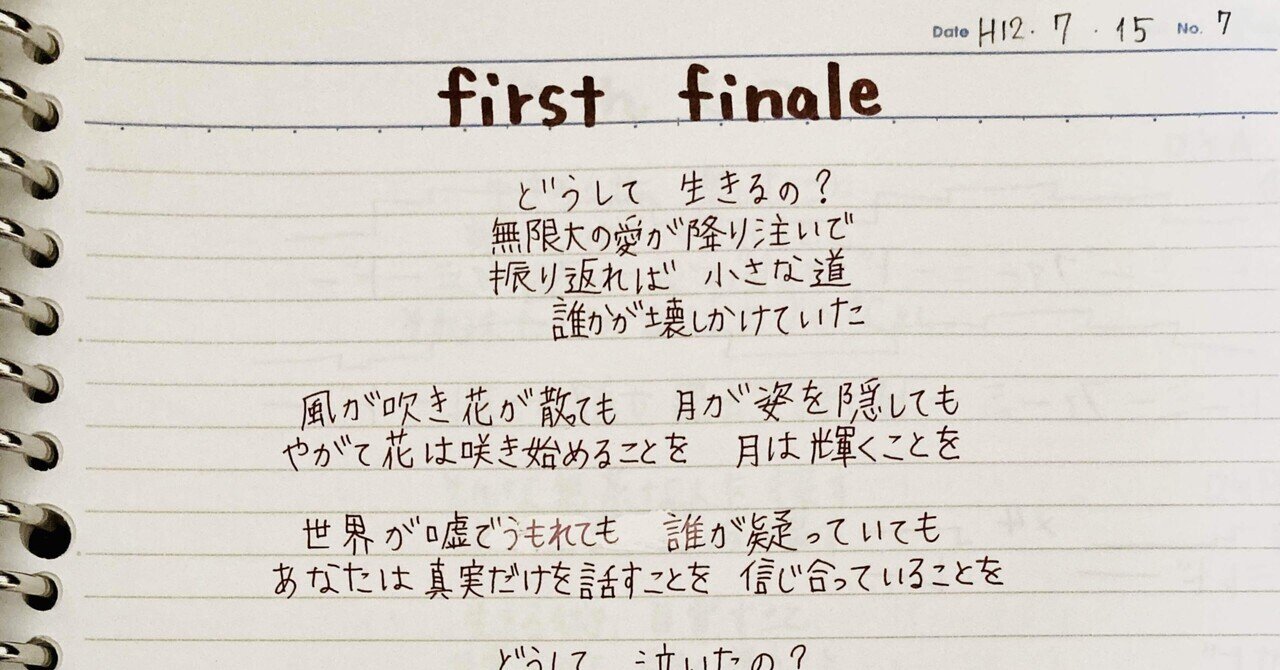 Date H12. 7. 15 No. 7
first finale
どうして 生きるの?
無限大の愛が降り注いで
振り返れば 小さな道
誰かが壊しかけていた
風が吹き花が散っても 月が姿を隠しても
やがて花は咲き始めることを 月は輝くことを
世界が嘘でうもれても 誰が疑っていても
あなたは真実だけを話すことを 信じ合っていることを
どうして 泣いたの?